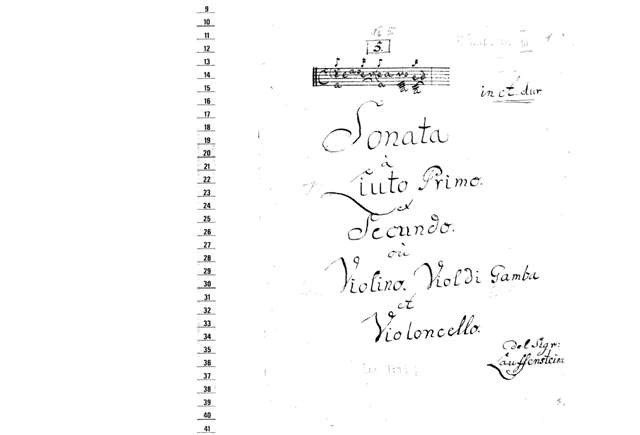 9
10
11
12
13
14
15
16
17
18
19
20
21
22
23
24
25
26
27
28
29
30
31
32
33
34
35
36
37
38
39
40
41
5.
in A. dur
Sonata
à
Liuto Primo.
et
Secundo.
où
Violino. Viol di Gamba
et
Violoncello.
Del Sigr:
Lauffenstein.